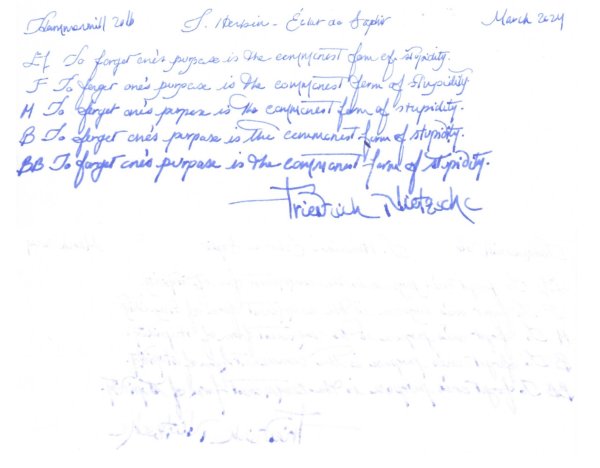 Hammermill 20lb J. Herbin - Éclat de Saphir March 2024
EF To forget one's purpose is the commonest form of stupidity.
F To forget one's purpose is the commonest form of stupidity
M To forget one's purpose is the commonest form of stupidity.
B To forget one's purpose is the commonest form of stupidity.
BB To forget one's purpose is the commonest form of stupidity.
Friedrich Nietzsche